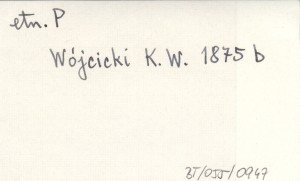 etn. P
Wójcicki K.W. 1875 b
BT/OJJ/0947